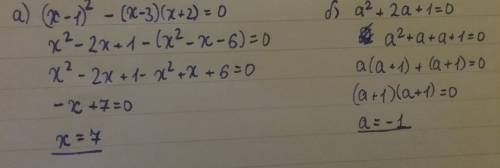 а) (x-1)² - (x-3)(x+2) = 0
x² - 2x + 1 - (x² - x - 6) = 0
x² - 2x + 1 - x² + x + 6 = 0
-x + 7 = 0
x = 7
б) a² + 2a + 1 = 0
a² + a + a + 1 = 0
a(a+1) + (a+1) = 0
(a+1)(a+1) = 0
a = -1